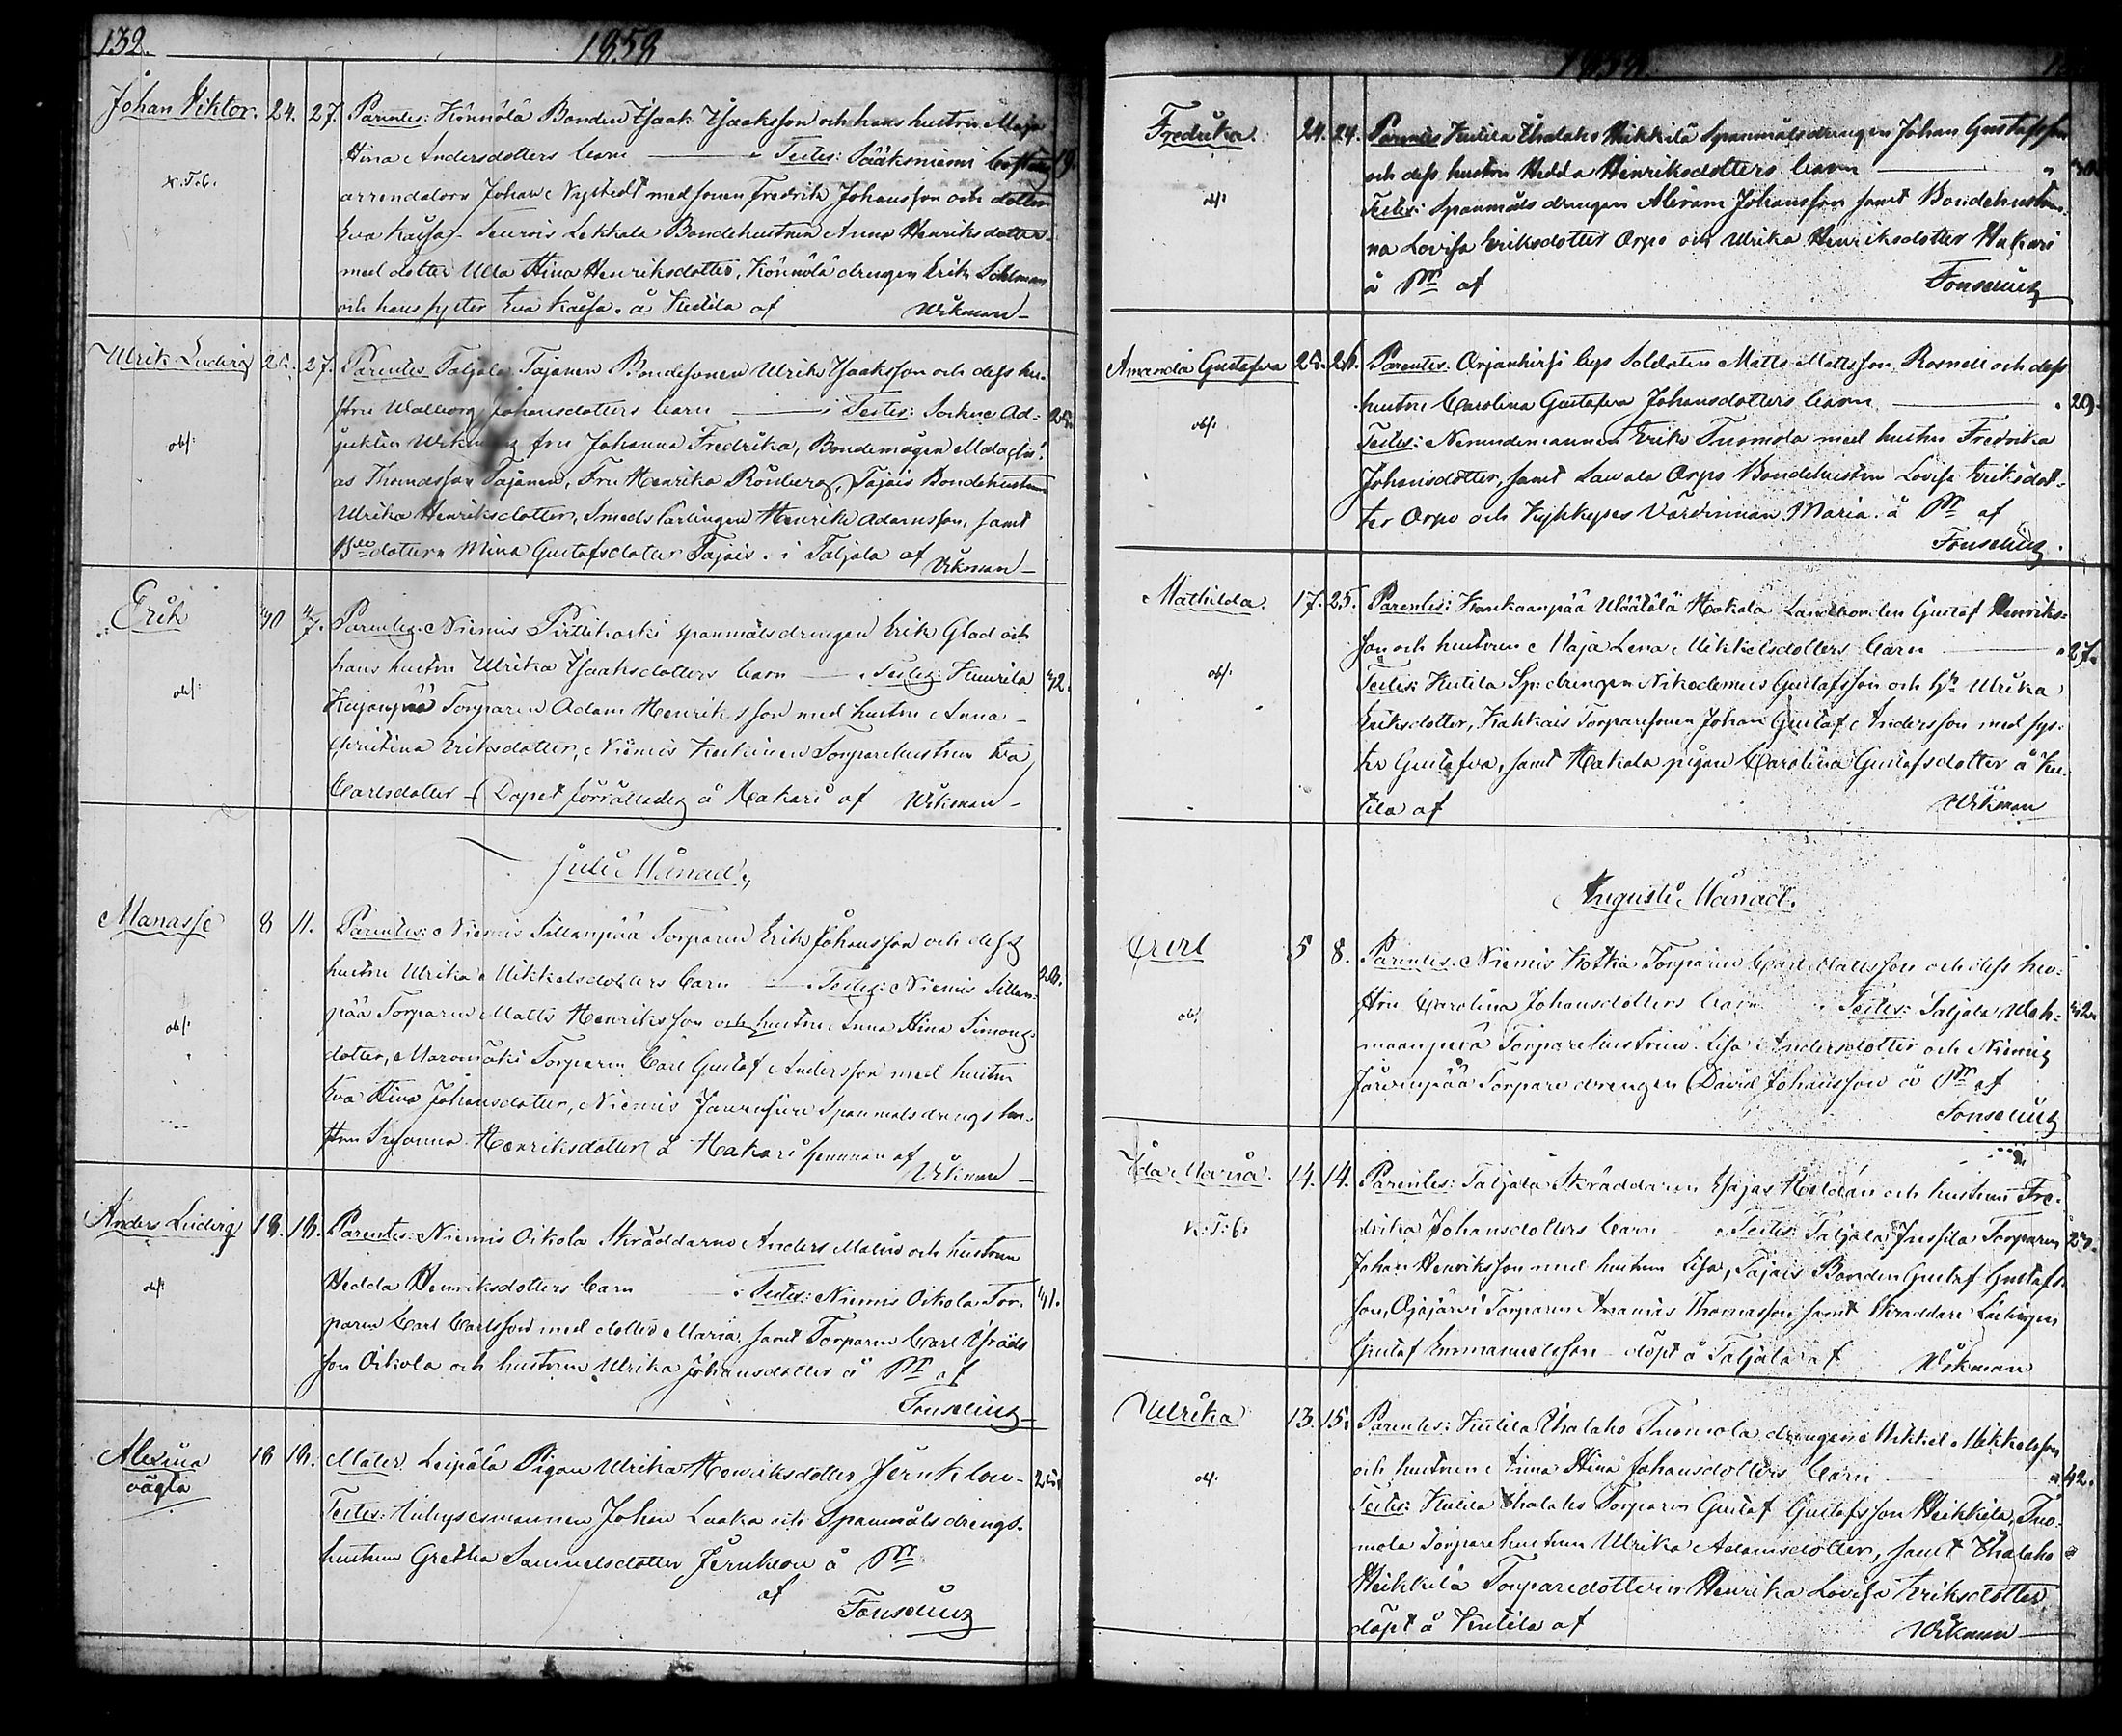 132.
1858
Johan Viktor. 24. 27. Parentes: Könnölä Bonden Isaak Isaaksson och hans hustru Maja
Stina Andersdotters barn — Testes: Sääksniemi
k.T.6. 19
arrendatorn Johan Nystedt med sonen Fredrik Johansson och dottren
Eva Kaisa. Lekkala Bondehustrun Anna Henriksdotter
med dotter Ulla Stina Henriksdotter, Könnölä drengen Erik Sohlman
och hans syster Eva Kaisa. å Kutila af Wikman
Ulrik Ludvig 25. 27. Parentes Taljala Tajanen Bondesonen Ulrik Isaaksson och dess hu-
stru Walborg Johansdotters barn — Testes: Ad- 25.
junkten Wikmans fru Johanna Fredrika, Bondemågen
obs:
as Thomasson Tajanen, Fru Henrika Rönberg, Tajais Bondehustrun
Ulrika Henriksdotter, Smeds Lärlingen Henrik Adamsson, samt
Bde dottern Mina Gustafsdotter Tajais. i Taljala af Wikman
Erik 30 4/7. Parentes. Niemis Pirttikoski spanmålsdrengen Erik Glad och
hans hustru Ulrika Isaaksdotters barn — Testes: 42.
obs:
Kujanpää Torparen Adam Henriksson med hustru Anna
Christina Eriksdotter, Niemis Torparehustrun Eva
Carlsdotter — Dopet förrättades å Hakari af Wikman
Juli Månad.
Manasse 8 11. Parentes: Niemis Sillanpää Torparen Erik Johansson och dess
hustru Ulrika Mikkelsdotters barn — Testes: Niemis Sillan-
obs:
pää Torparen Matts Henriksson och hustru Anna Stina Simons-
dotter, Maromäki Torparen Carl Gustaf Andersson med hustru
Eva Stina Johansdotter, Niemis Spanmålsdrengs hu-
stru Henriksdotter å Hakari hemman af
Wikman
Anders Ludvig 18. 18. Parentes: Niemis Oikola Skräddaren Anders Malin och hustrun
Hedda Henriksdotters barn — Testes: Niemis Oikola Tor- 41.
obs:
paren Carl Carlsson med dotter Maria, samt Torparen Carl Israels
son Oikola och hustrun Ulrika Johansdotter å Pm af
Fonselius
Alexina
oägta
18 18. Mater. Leipälä Pigan Ulrika Henriksdotter Jernklou
Testes: Inhysesmannen Johan Laaka och Spanmåls drengs-
hustrun Gretha Samuelsdotter Jernklou å Pm
af Fonselius
1858.
Fredrika. 24. 24. Parentes Kutila Uhalako Heikkilä Spanmålsdrengen Johan Gustafsson
och dess hustru Hedda Henriksdotters barn —
obs:
Testes: Spanmåls drengen Abram Johansson samt Bondehustrur-
na Lovisa Eriksdotter Orpo och Ulrika Henriksdotter Hakari
å Pm af Fonselius
Amanda Gustafva 25. 26. Parentes: Orjanhirsi bys Soldaten Matts Mattsson Rosnell och dess
hustru Carolina Gustafva Johansdotters barn — 29.
obs:
Testes: Nemndemannen Erik Tuomola med hustru Fredrika
Johansdotter, samt Sawala Orpo Bondehustrun Lovisa Eriksdot-
ter Orpo och Värdinnan Maria. å Pm af
Fonselius.
Mathilda. 17. 25. Parentes: Kankaanpää Uläälä Hakala Landbonden Gustaf Henriks-
son och hustrun Maja Lena Mikkelsdotters barn — 27.
obs:
Testes: Kutila Sp: drengen Nikodemus Gustafsson och Hu Ulrika
Eriksdotter, Kahkais Torparesonen Johan Gustaf Andersson med sys-
ter Gustafva, samt Hakala pigan Carolina Gustafsdotter å Ku-
tila af Wikman
Augusti Månad.
Carl 5 8. Parentes. Niemis Kotka Torparen Carl Mattsson och dess hu-
stru Carolina Johansdotters barn Testes: Taljala
obs:
Torparehustrun Lisa Andersdotter och Niemis
Järvenpää Torpare drengen David Johansson å Pm af
Fonselius
Ida Maria. 14. 14. Parentes: Taljala Skräddaren Esajas Heldán och hustrun Fre-
drika Johansdotters barn Testes: Taljala Jussila Torparen
k:T:6:
Johan Henriksson med hustrun Lisa, Tajais Bonden Gustaf Gustafs-
son, Ojajärvi Torparen Ananias Thomasson samt Skräddare Lärlingen
Gustaf Emmanuelsson — döpt å Taljala af Wikman
Ulrika 13. 15. Parentes: Kutila Uhalako Tuomola drengen Mikkel Mikkelsson
och hustrun Anna Stina Johansdotters barn 42.
obs:
Testes: Kutila Uhalako Torparen Gustaf Gustafsson Heikkilä, Tuo-
mola Torparehustrun Ulrika Adamsdotter, samt Uhalako
Heikkilä Torparedottern Henrika Lovisa Eriksdotter
döpt å Kutila af Wikman